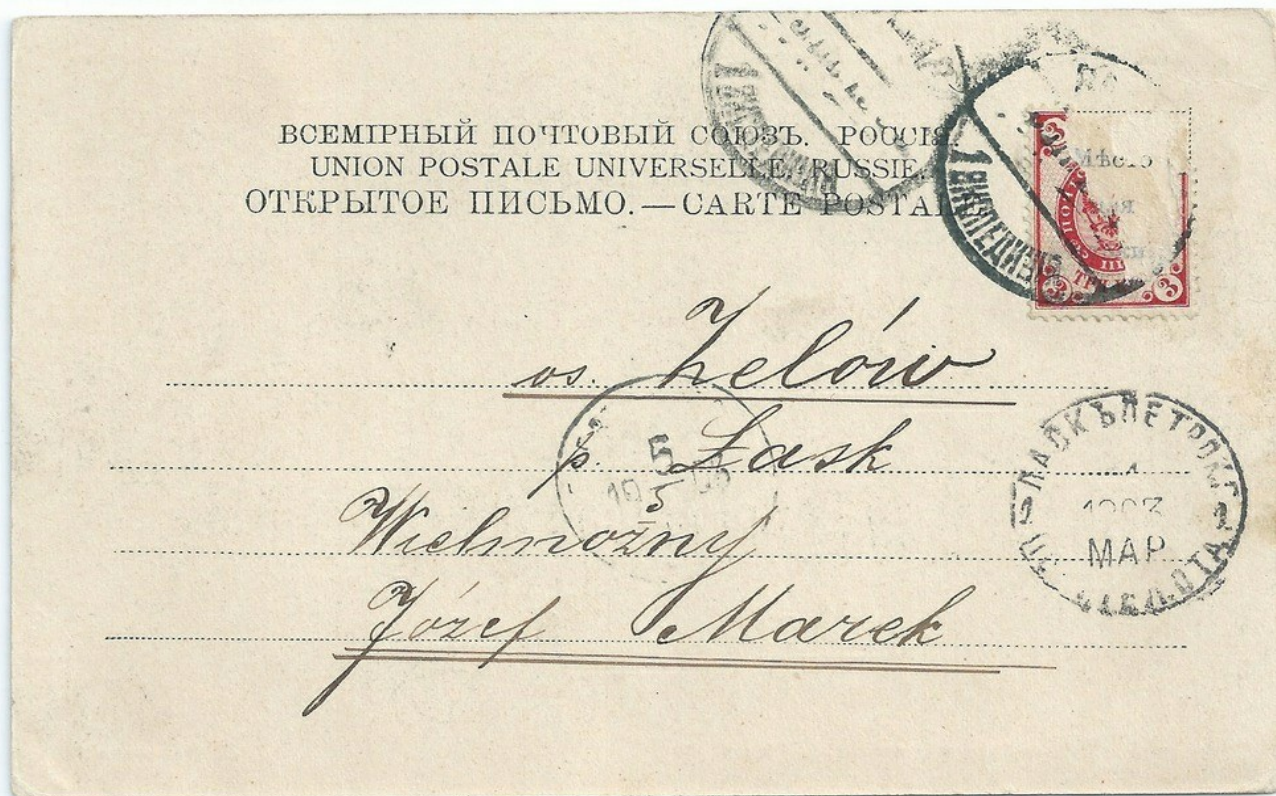 ВСЕМІРНЫЙ ПОЧТОВЫЙ СОЮЗЪ. РОССІЯ.
UNION POSTALE UNIVERSELLE. RUSSIE.
ОТКРЫТОЕ ПИСЬМО.—CARTE POSTAL
Мѣсто
3
3 3
1 ЭКСПЕДИЦІЯ
1 ЭКСПЕДИЦІЯ
os. Zelów
p. Łask
Wielmożny
Józef Marek
5
5
ЛАСКЪ ПЕТРОК. Г.
1903
МАР